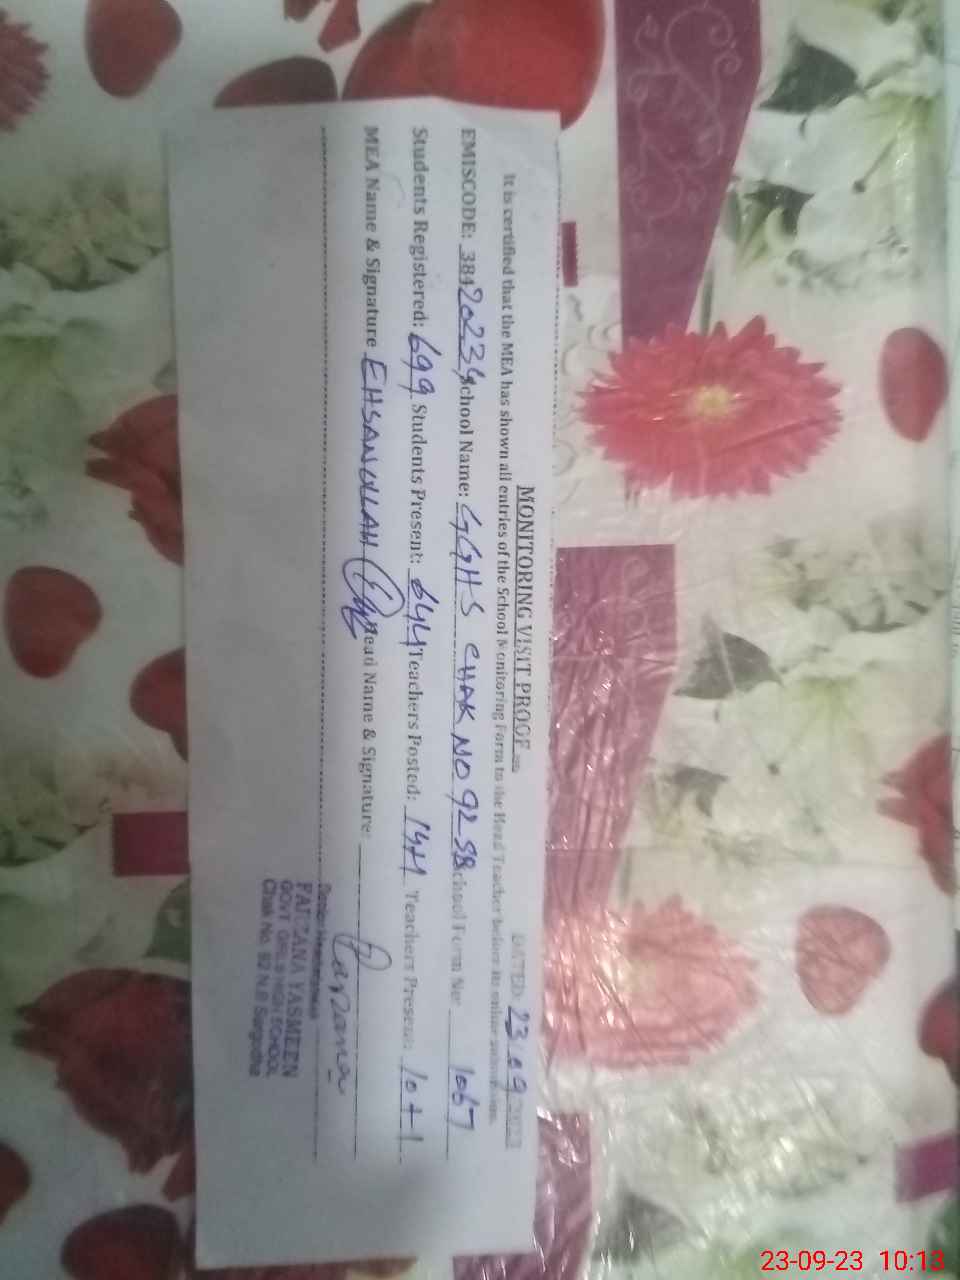 MONITORING VISIT PROOF
DATED: 23.09.2023
It is certified that the MEA has shown all entries of the School Monitoring Form to the Head Teacher before its online submissions.
EMISCODE: 38420234 School Name: GGHS CHAK NO 92 SB School Form No: 1067
Students Registered: 699 Students Present: 644 Teachers Posted: Teachers Present: 10+1
MEA Name & Signature EHSANULLAH Head Name & Signature: Farzana
Senior Headmistress
FARZANA YASMEEN
GOVT GIRLS HIGH SCHOOL
Chak No. 92 N.B Sargodha
23-09-23 10:13